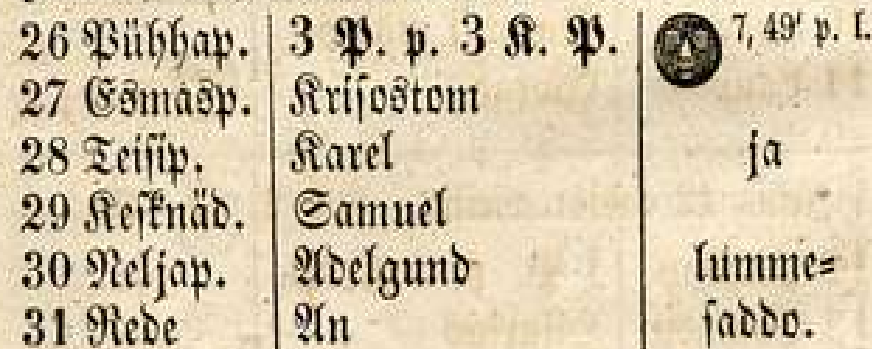 26 Pühhap. 3 P. p. 3 K. P. 7, 49' p. l.
27 Esmasp. Krisostom
28 Teisip. Karel ja
29 Kesknäd. Samuel
30 Neljap. Adelgund lumme-
31 Rede An saddo.